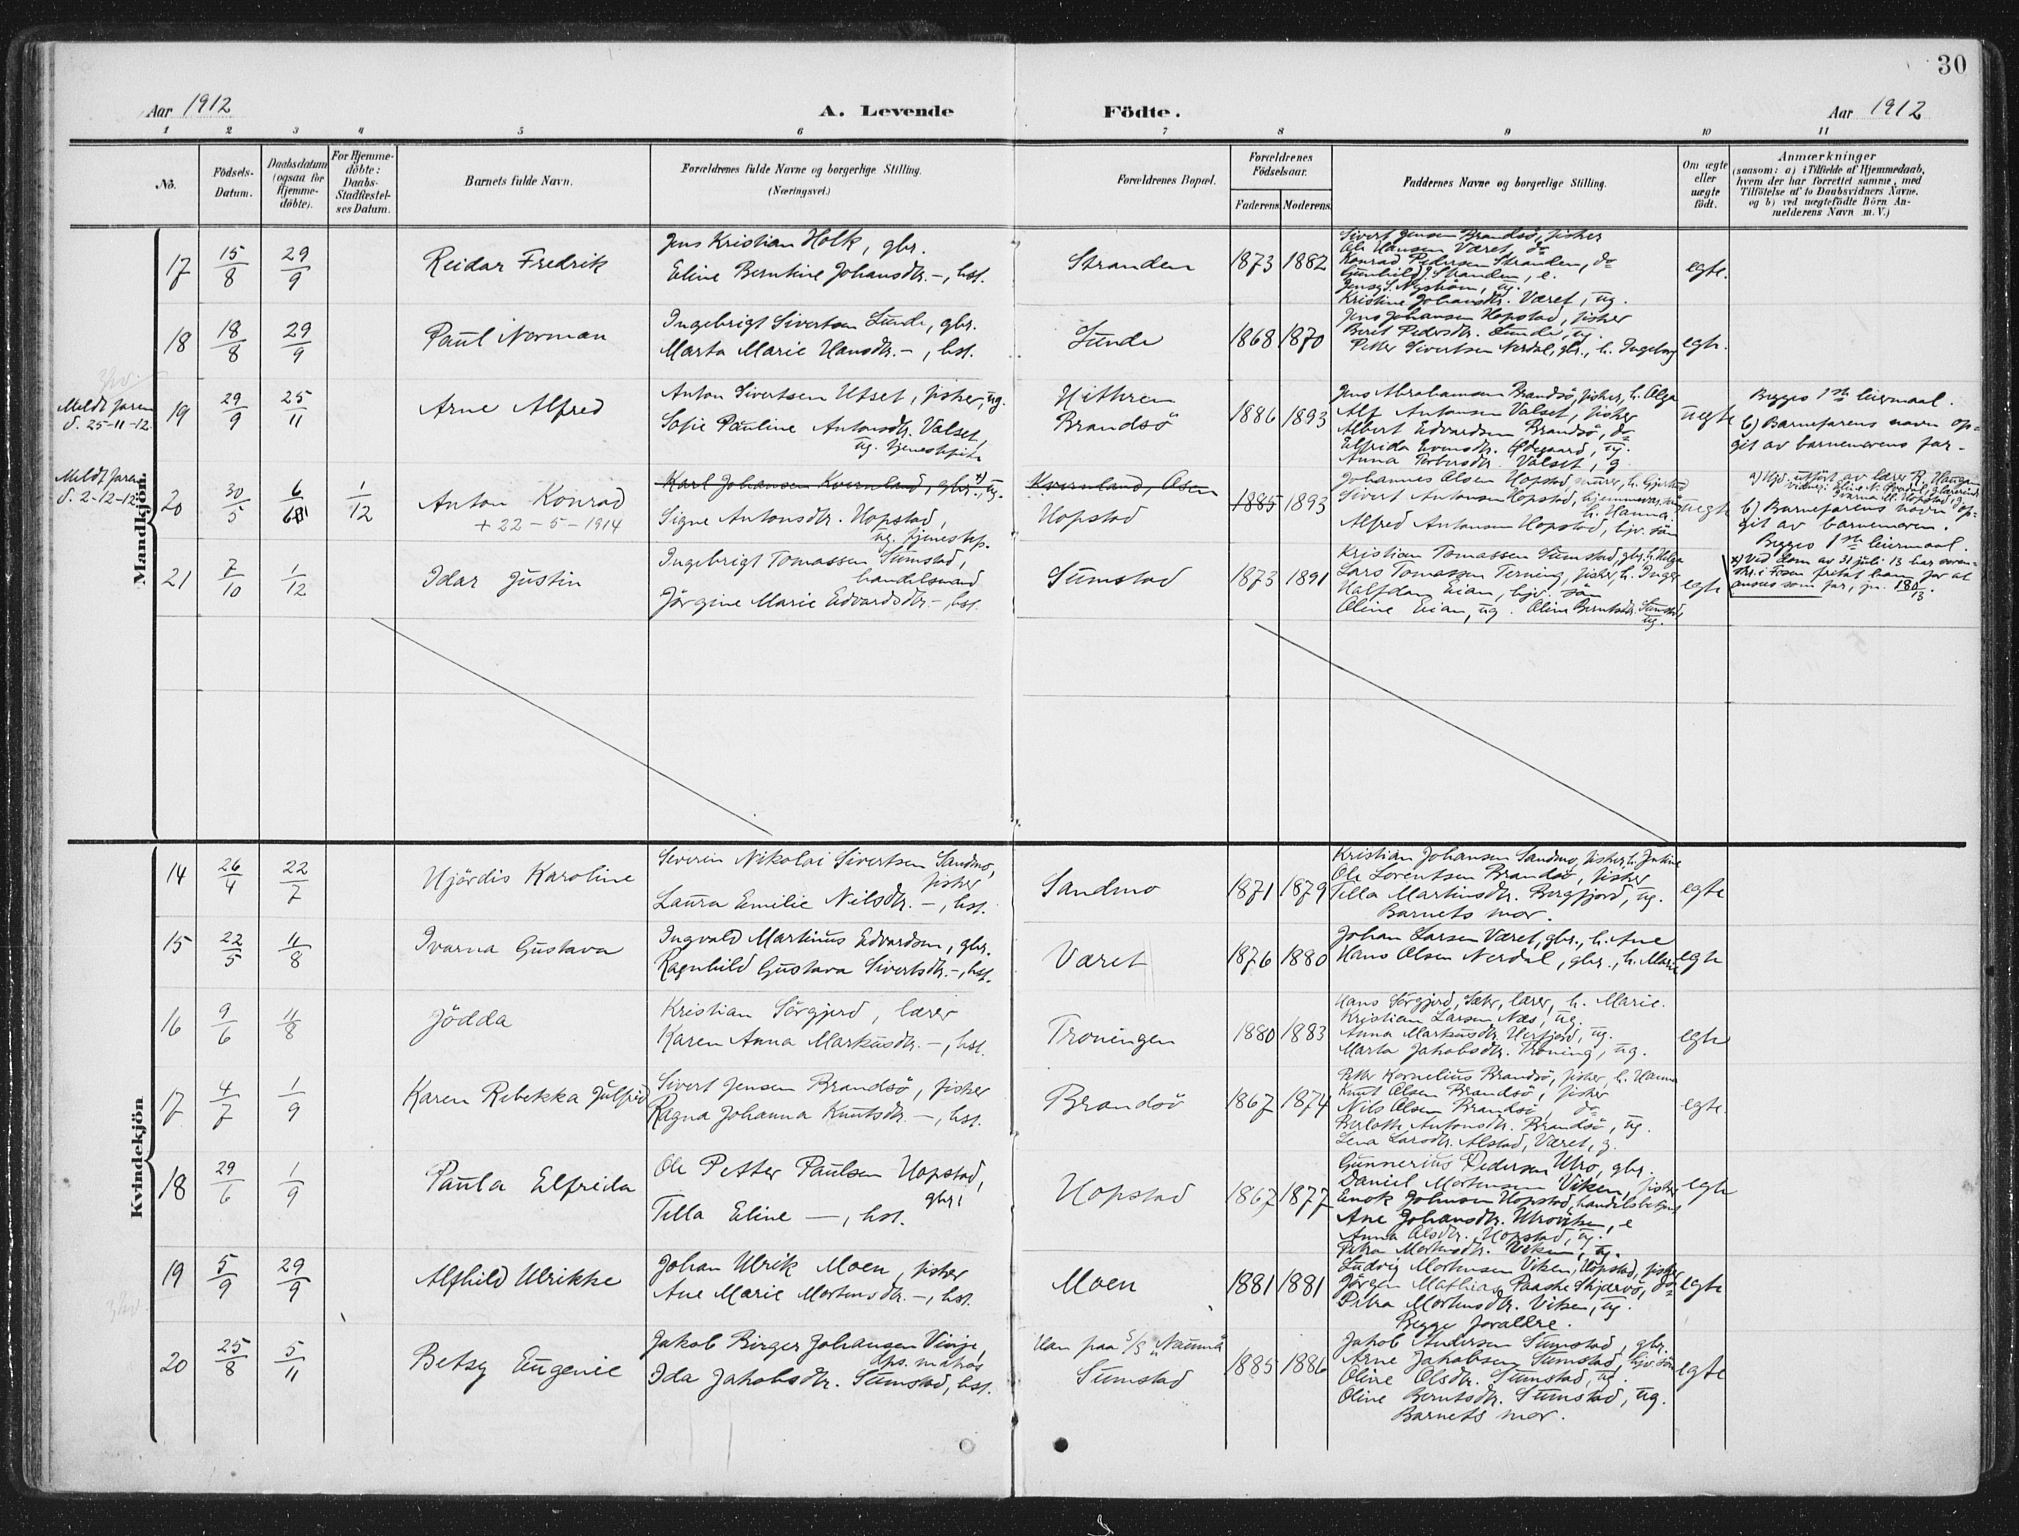 30
Aar 1912 A. Levende Födte. Aar 1912
1 2 3 4 5 6 7 8 9 10 11
No.
Födsels-Datum.
Daabsdatum (ogsaa for Hjemme-döbte).
For Hjemme-döbte: Daabs-Stadfæstel-ses Datum.
Barnets fulde Navn.
Forældrenes fulde Navne og borgerlige Stilling.
(Næringsvei.)
Forældrenes Bopæl.
Forældrenes Födselsaar.
Faderens Moderens
Faddernes Navne og borgerlige Stilling.
Om ægte eller uægte födt.
Anmærkninger
(saasom: a) i Tilfælde af Hjemmedaab,
hvem der har forrettet samme, med
Tilföielse af to Daabsvidners Navne,
og b) ved uægtefödte Börn An-
melderens Navn m. V.)
Mandkjön.
17 15/8 29/9 Reidar Fredrik
Jens Kristian Holk, gbr.
Eline Berntine Johansdtr. –, hst.
Stranden 1873 1882
Sivert Jensen Brandsö, fisker
Ole Hansen Været, do
Konrad Pedersen Stranden, do
Gunhild J. Stranden, e.
Jensy S. Nyström, ug.
Kristine Johansdtr. Været, ug.
egte.
18 18/8 29/9 Paul Norman
Ingebrigt Sivertsen Sunde, gbr.
Marta Marie Hansdtr. –, hst.
Sunde 1868 1870
Jens Johansen Hopstad, fisker
Berit Pedersdtr. Sunde, ug.
Petter Sivertsen Nerdal, gbr., h. Ingeborg
egte.
Meldt faren
d. 25-11-12.
19 29/9 25/11 Arne Alfred
Anton Sivertsen Utset, fisker, ug.
Sofie Pauline Antonsdtr. Valset,
ug. tjenestpike
Hithren
Brandsö
1886 1893
Jens Abrahamsen Brandsö, fisker, h. Olga
Alf Antonsen Valset, fisker
Albert Edvardsen Brandsö, do
Elfrida Evensdtr. Ödegaard, ug.
Anna Torbersdtr. Valset, g.
uegte
Begges 1ste leiermaal.
b) Barnefarens navn op-
git av barnemorens far.-
Meldt faren
d. 2-12-12.
20 30/5 6/6 1/12 Anton Konrad
+ 22-5-1914
Karl Johansen Kvernland, gbr. x), ug.
Signe Antonsdtr. Hopstad,
ug. tjenestep.
Kvernland, Osen
Hopstad
1885 1893
Johannes Olsen Hopstad, murer, h. Gjertrud
Sivert Antonsen Hopstad, hjemmevær. sön
h. Hanna
Alfred Antonsen Hopstad, hjv. sön
uegte
a) Hjd. utfört av lærer R. Haugen
b) Barnefarens navn op-
git av barnemoren.
Begges 1ste leiermaal.
x) Ved dom av 31 juli 13
i Fosen fritat ham for at
ansees som far, jn. 180/13.
21 7/10 1/12 Idar Justin
Ingebrigt Tomassen Sumstad,
handelsmand
Jörgine Marie Edvardsdtr. –, hst.
Sumstad 1873 1891
Kristian Tomassen Sumstad, gbr., h. Helga
Lars Tomassen Terning, fisker, h. Inger
Halfdan Eian, hjv. sön
Oline Eian, ug. Oline Berntsdtr. Sumstad,
ug.
egte
Kvindekjön
14 26/4 22/7 Hjördis Karoline
Severin Nikolai Sivertsen Sandmo,
fisker
Laura Emilie Nilsdtr. –, hst.
Sandmo 1871 1879
Kristian Johansen Sandmo, fisker, h. Justine
Ole Lorentsen Brandsö, fisker
Tilla Martinsdtr. Bergfjord, ug.
Barnets mor.
egte
15 22/5 11/8 Ivarna Gustava
Ingvald Martinus Edvardsen, gbr.
Ragnhild Gustava Sivertsdtr. –, hst.
Været 1876 1880
Johan Larsen Været, gbr., h. Ane
Hans Olsen Nerdal, gbr., h. Marie
egte
16 9/6 11/8 Jödda
Kristian Sörgjerd, lærer
Karen Anna Markusdtr. –, hst.
Troningen 1880 1883
Hans Sörgjerd, Sæter, lærer, h. Marie.
Kristian Larsen Næs, ug.
Anna Markusdtr. Herfjord, ug.
Marta Jakobsdtr. Troning, ug.
egte
17 4/7 1/9 Karen Rebekka Julfrid
Sivert Jensen Brandsö, fisker
Ragna Johanna Knutsdtr. –, hst.
Brandsö 1867 1874
Petter Kornelius Brandsö, fisker, h. Hanna
Knut Olsen Brandsö, fisker
Nils Olsen Brandsö, do
Berlotte Antonsdtr. Brandsö, ug.
Lena Larsdtr. Alstad, Været, g.
egte.
18 29/6 1/9 Paula Elfrida
Ole Petter Paulsen Hopstad,
gbr.
Tilla Eline –, hst.
Hopstad 1867 1877
Gunnerius Pedersen Utro, gbr.
Daniel Mortensen Viken, fisker
Enok Johnsen Hopstad, handelsbetjent
Ane Johansdtr. Utroviken, e
Anna Olsdtr. Hopstad, ug.
Petra Mortensdtr. Viken, ug.
egte
19 5/9 29/9 Alfhild Ulrikke
Johan Ulrik Moen, fisker
Ane Marie Mortensdtr. –, hst.
Moen 1881 1881
Ludvig Mortensen Viken, Hopstad, fisker
Jörgen Mathias Paaske Skjervö, do
Petra Mortensdtr. Viken, ug.
Begge foraldre.
egte
20 25/8 5/11 Betsy Eugenie
Jakob Birger Johansen Vinje,
dps. matros
Ida Jakobsdtr. Sumstad, hst.
Han paa S/S "Nauma
Sumstad
1885 1886
Jakob Andersen Sumstad, gbr.
Arne Jakobsen Sumstad, hjv. sön
Oline Olsdtr. Sumstad, ug.
Oline Berntsdtr. Sumstad, ug.
Barnets mor.
egte